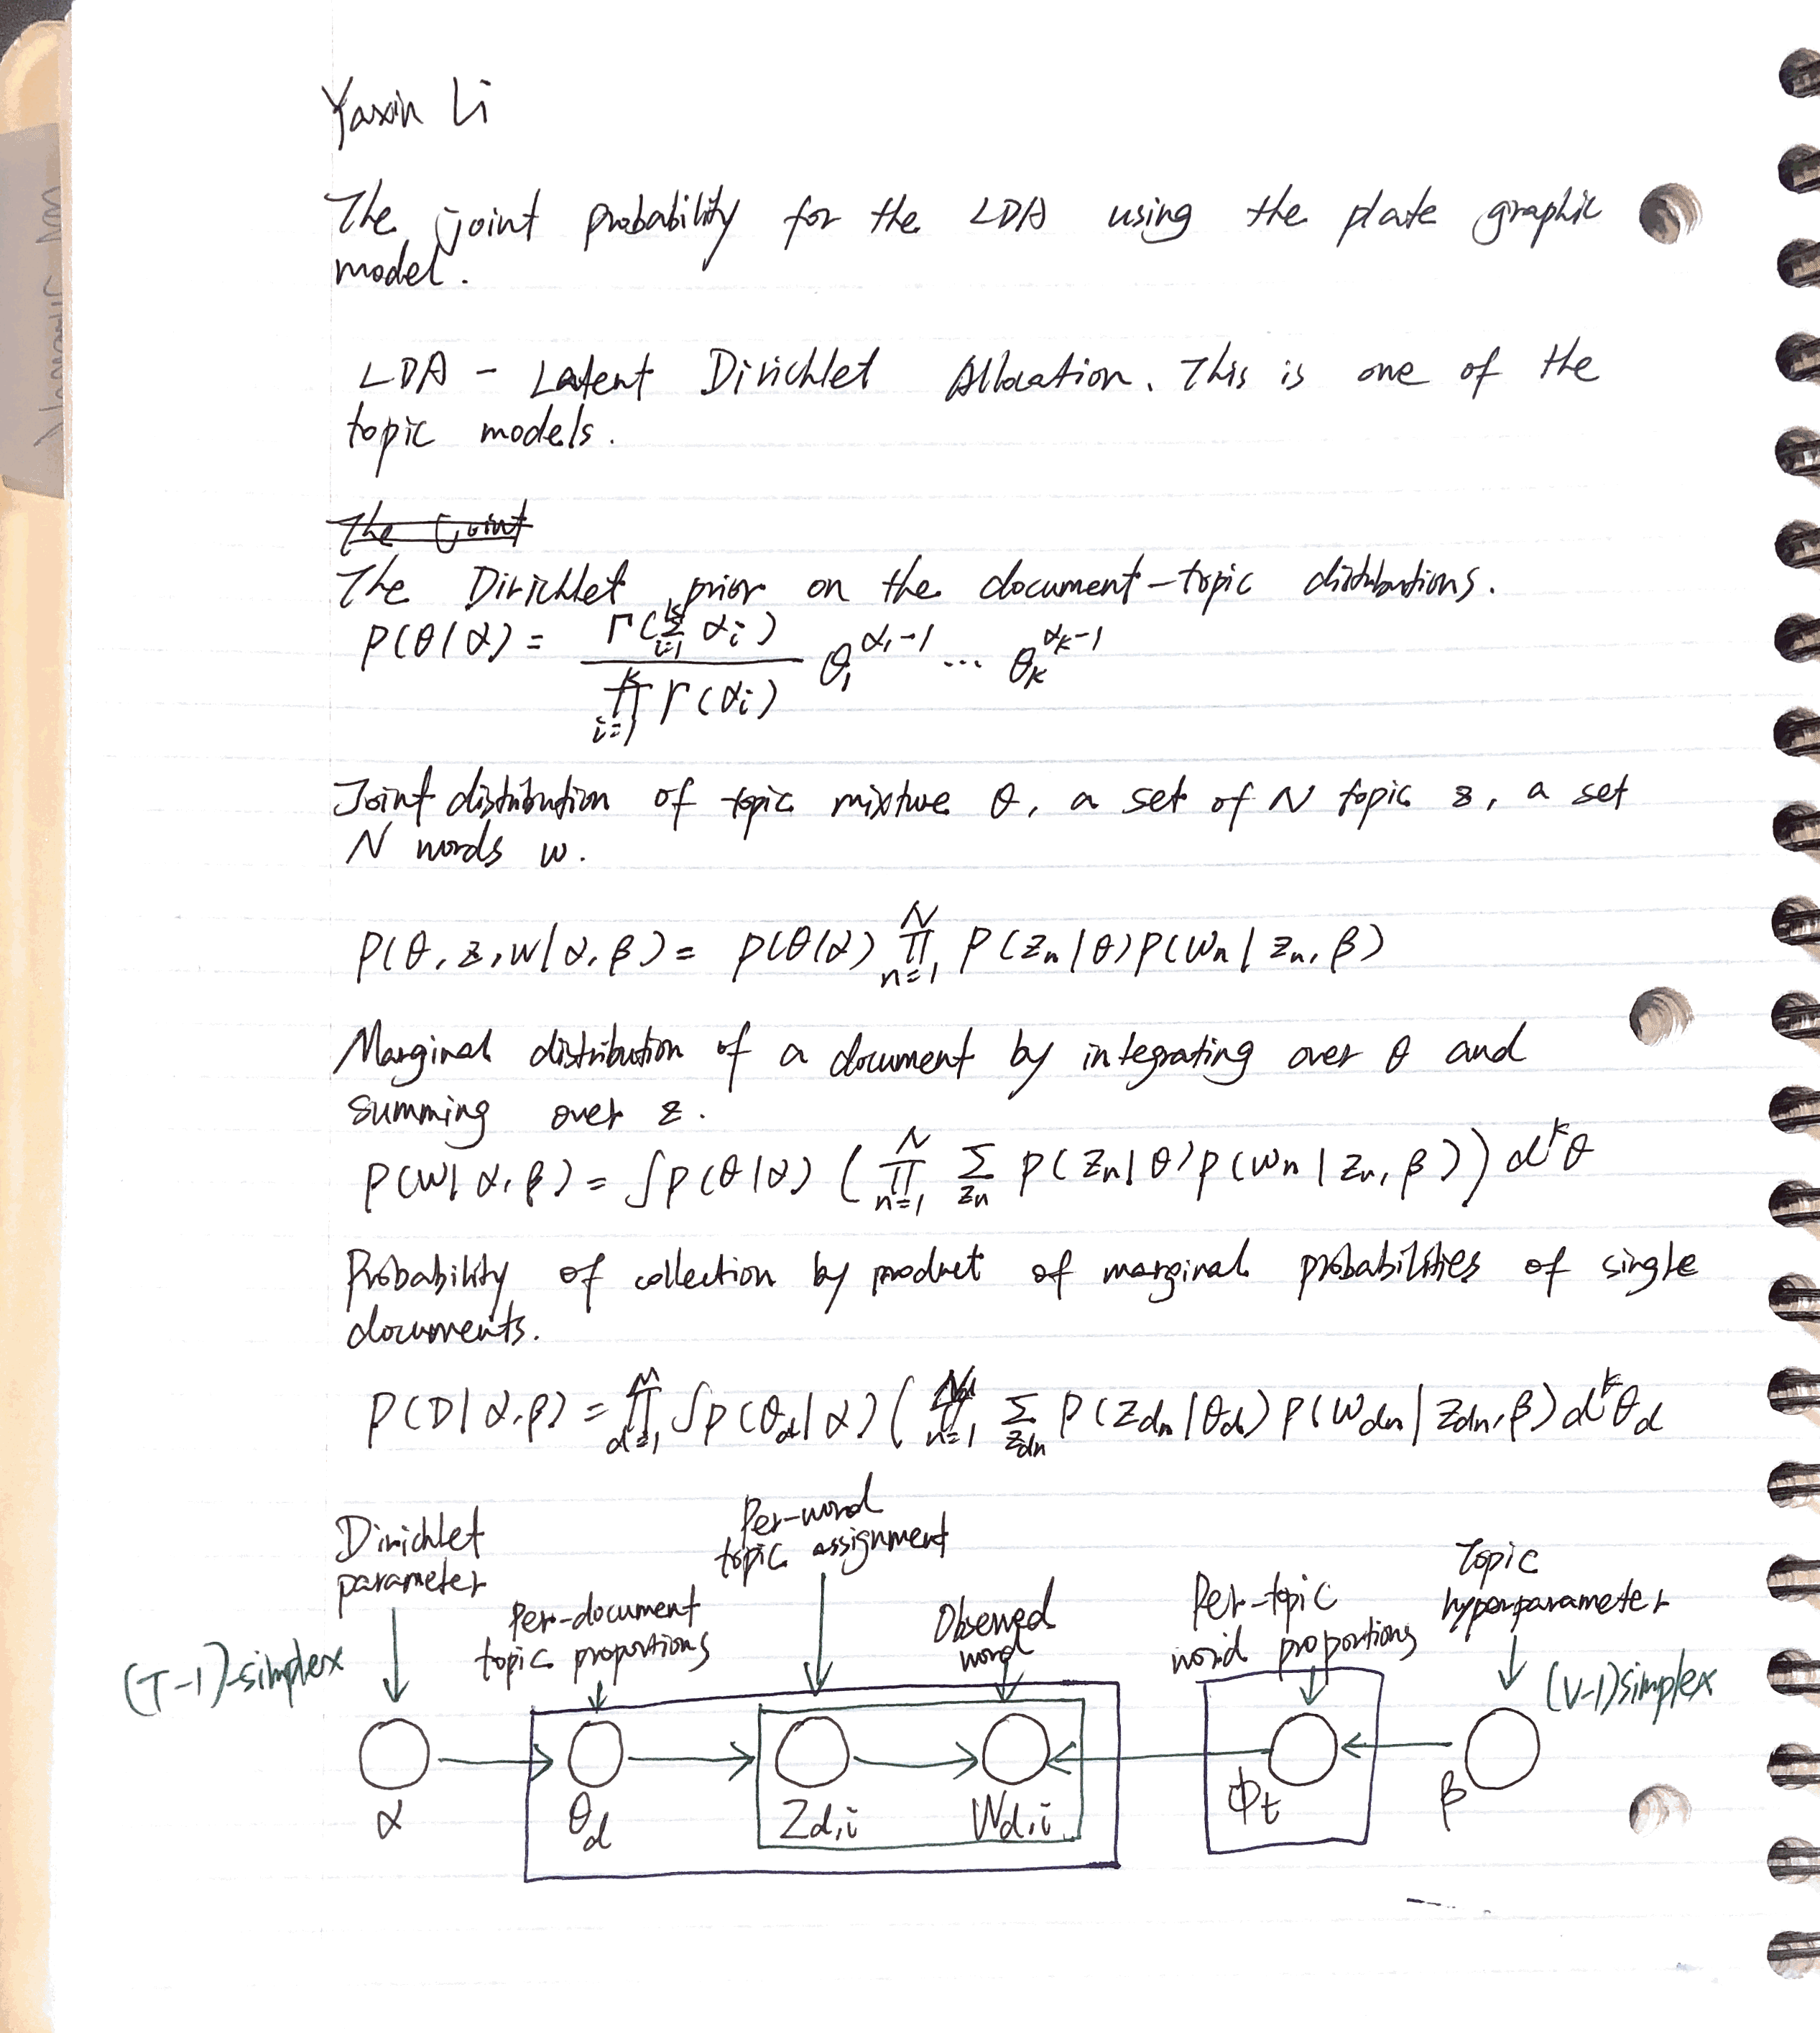 Yaxin Li
The joint probability for the LDA using the plate graphic
model.
LDA - Latent Dirichlet Allocation. This is one of the
topic models.
The Joint
The Dirichlet prior on the document-topic distributions.
P(θ|α) = Γ(∑_{i=1}^{k} αi) / ∏_{i=1}^{k} Γ(αi) θ₁^{α₁-1} ... θ_k^{α_k-1}
Joint distribution of topic mixture θ, a set of N topic z, a set
N words w.
P(θ, z, w|α, β) = p(θ|α) ∏_{n=1}^{N} P(Zn|θ)P(Wn|Zn, β)
Marginal distribution of a document by integrating over θ and
summing over z.
P(W|α, β) = ∫p(θ|α) (∏_{n=1}^{N} ∑_{Zn} P(Zn|θ)p(Wn|Zn, β)) d^kθ
Probability of collection by product of marginal probabilities of single
documents.
P(D|α, β) = ∏_{d=1}^{M} ∫p(θd|α) (∏_{n=1}^{Nd} ∑_{Zdn} P(Zdn|θd) P(Wdn|Zdn, β) d^kθd
Dirichlet
parameter
Per-document
topic proportions
Per-word
topic assignment
Observed
word
Per-topic
word proportions
Topic
hyperparameter
(T-1)-simplex
(V-1)simplex
α
θd
Zd,i
Wd,i
ϕt
β